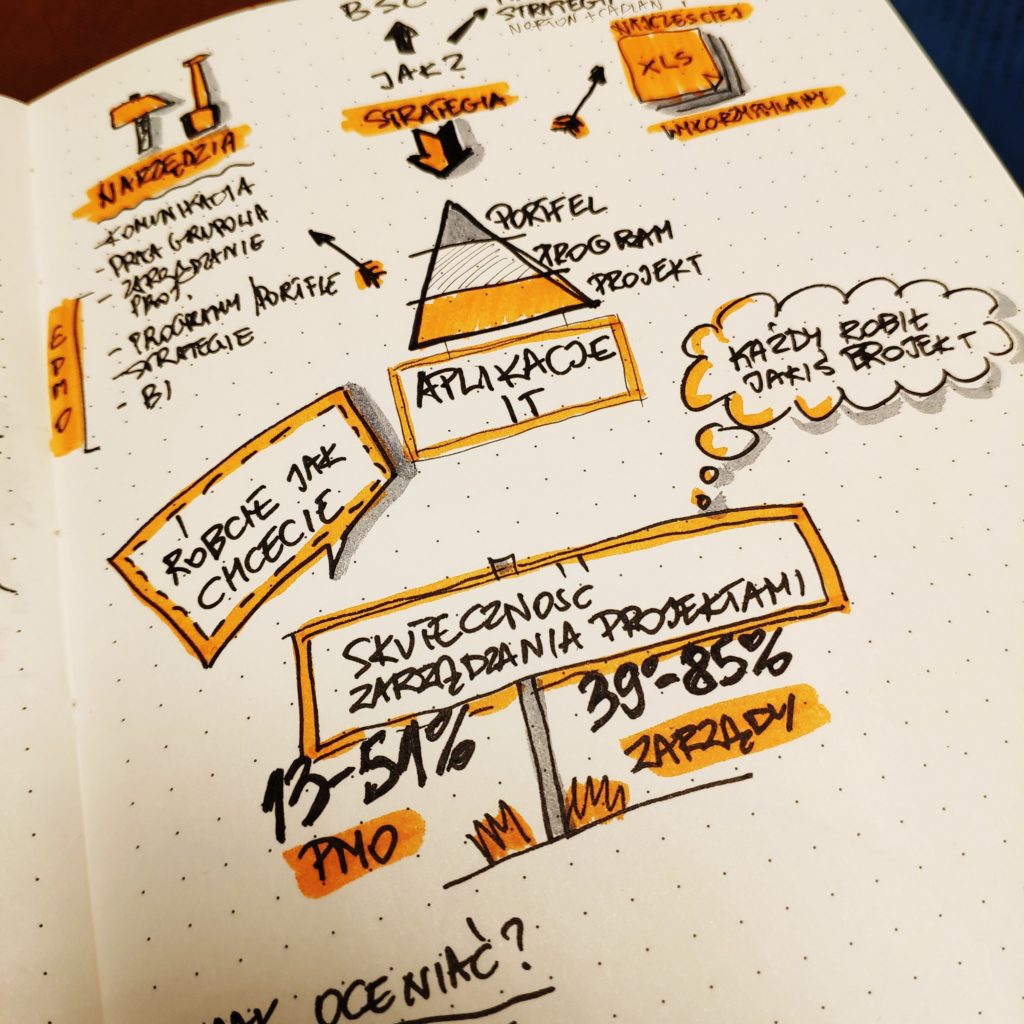 BSC
STRATEGI
NORTON + CAPLAN
JAK?
STRATEGIA
NAJCZĘŚCIEJ
XLS
WYKORZYSTYWANY
NARZĘDZIA
- KOMUNIKACJA
- PRACA GRUPOWA
- ZARZĄDZANIE
PROJ.
- PROGRAMY/PORTFLE
- STRATEGIE
- BI
EPMO
PORTFEL
PROGRAM
PROJEKT
APLIKACJE
IT
KAŻDY ROBIŁ
JAKIŚ PROJEKT
RÓBCIE JAK
CHCECIE
SKUTECZNOŚĆ
ZARZĄDZANIA PROJEKTAMI
13-51%
PMO
39-85%
ZARZĄDY
JAK OCENIAĆ?